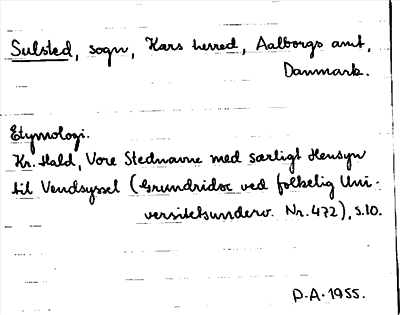 Sulsted, sogn, Kærs herred, Aalborgs amt,
Danmark.
Etymologi.
Kr. Hald, Vore Stednavne med særligt Hensyn
til Vendsyssel (Grundridse ved folkelig Uni-
versitetsunderv. Nr. 472), s.10.
P.A. 1955.